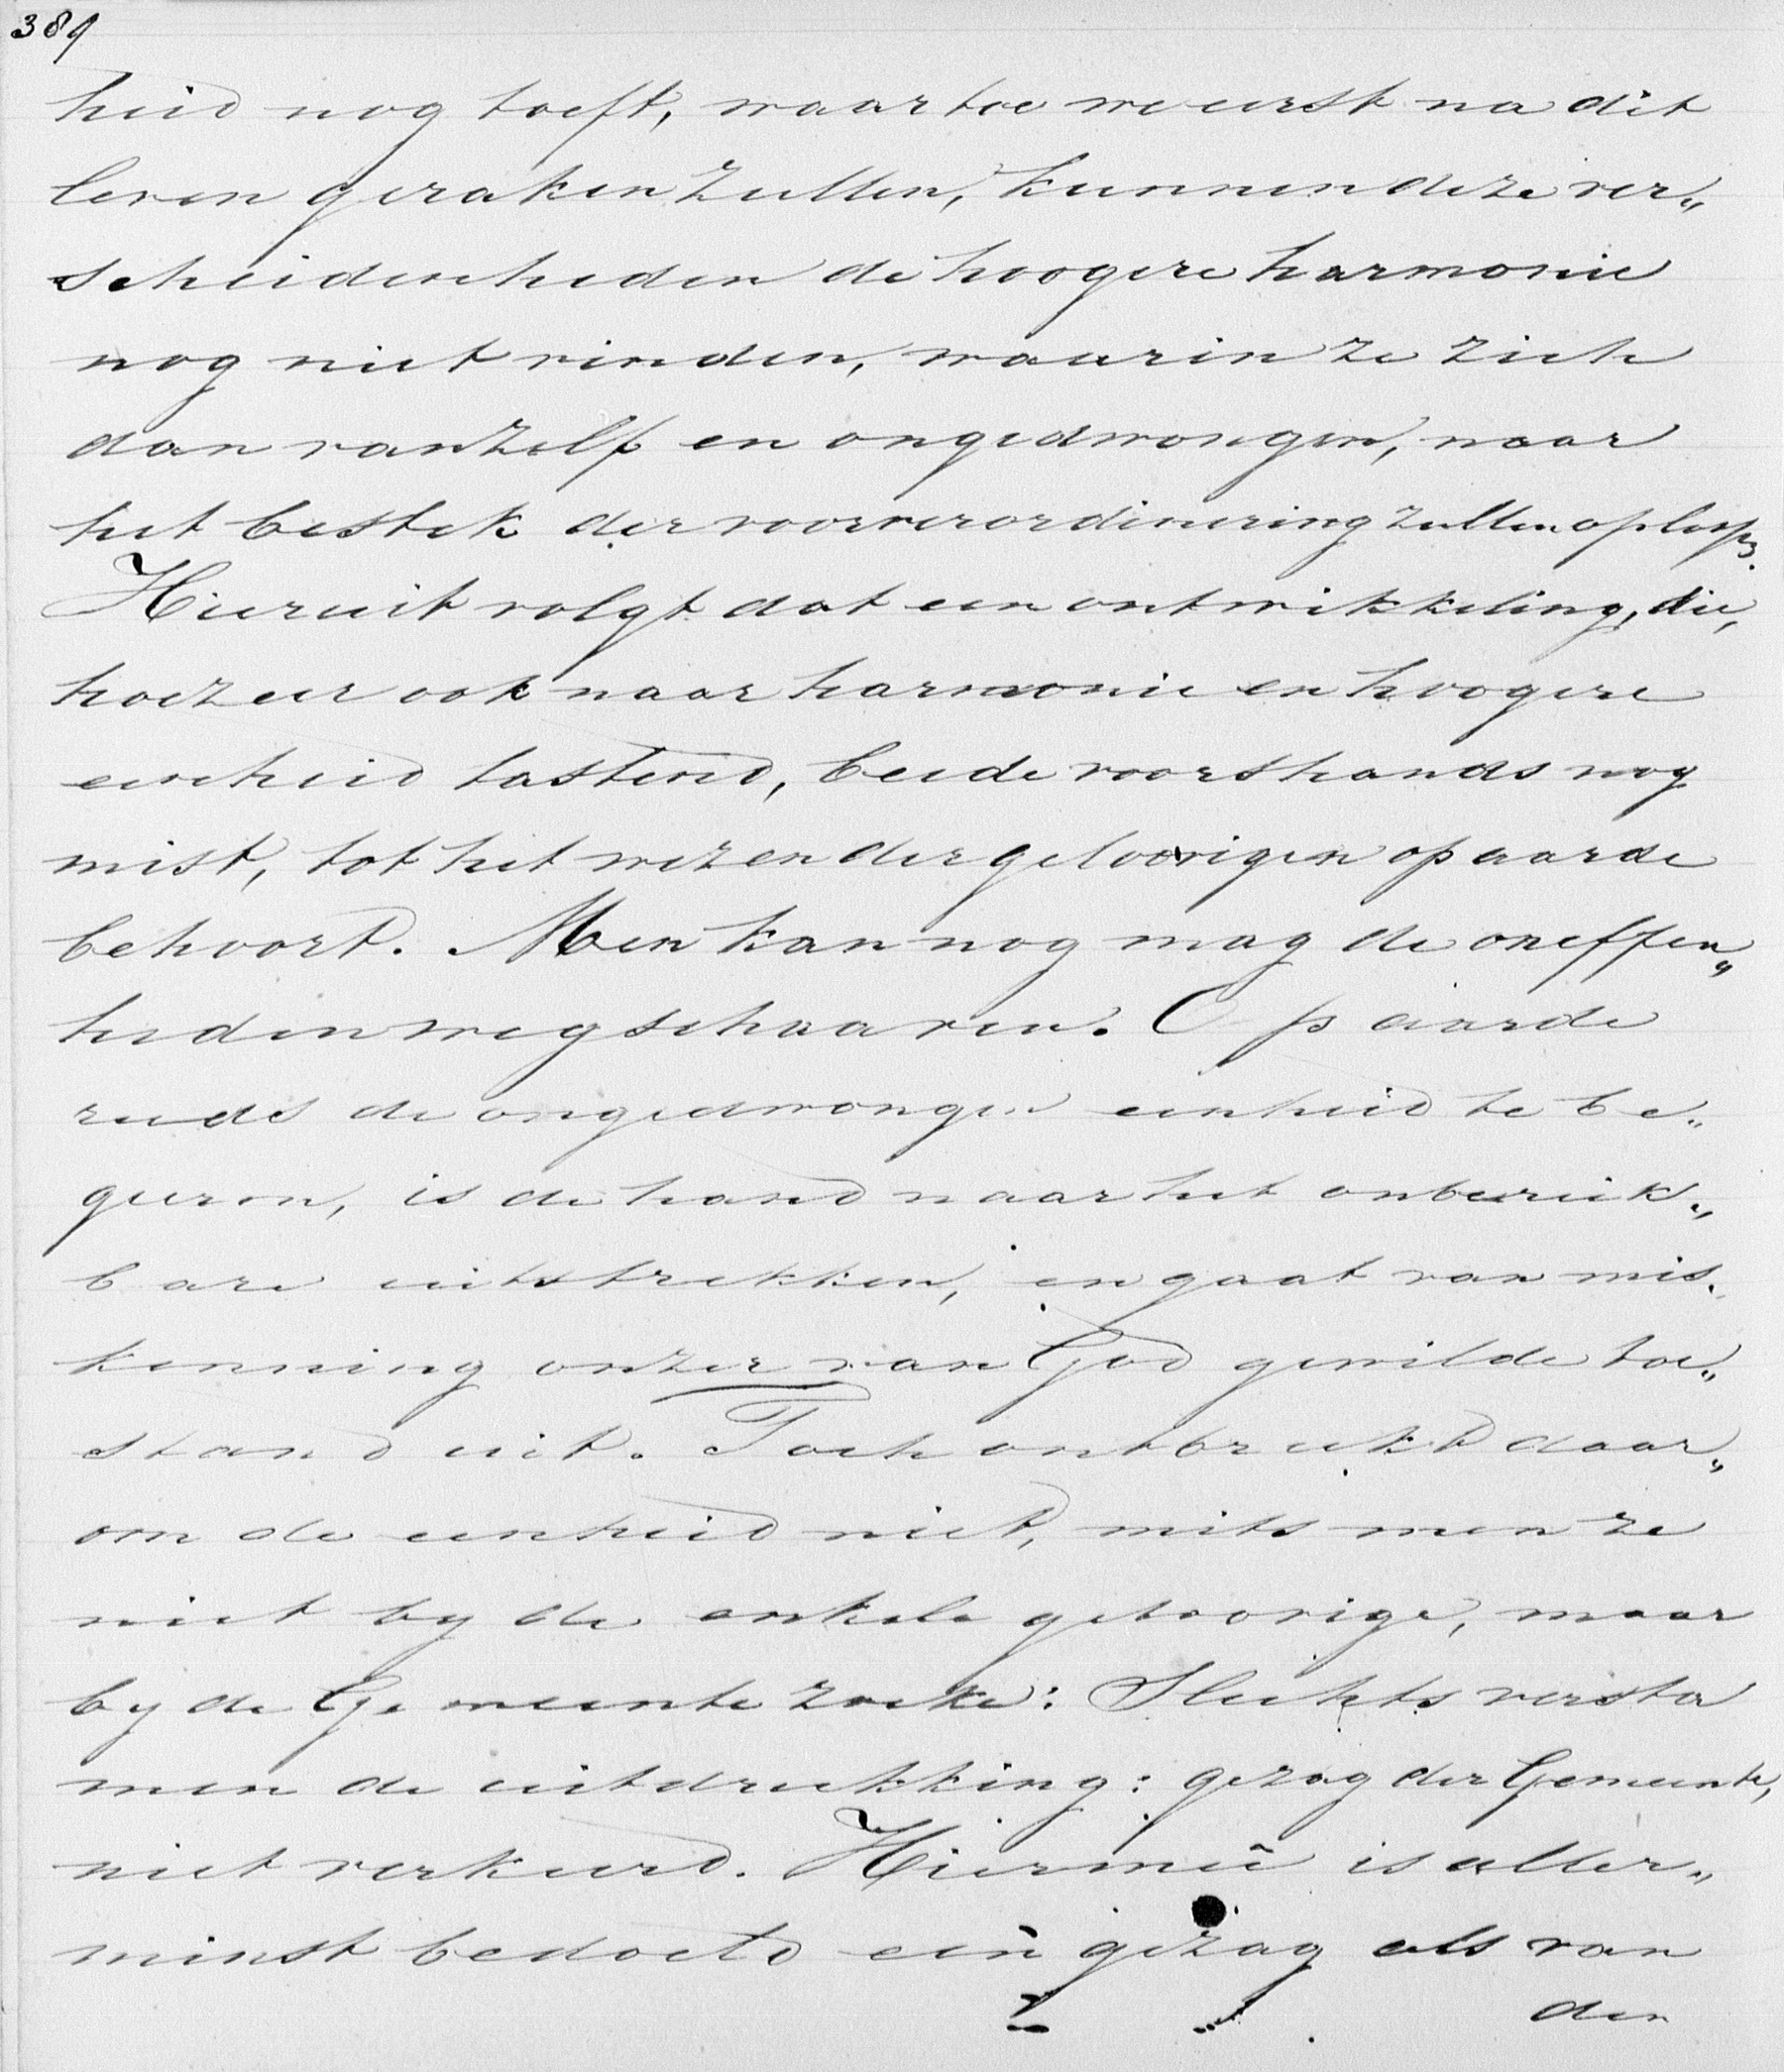 389
heid nog toeft, waartoe we eerst na dit
leven geraken zullen, kunnen deze ver„
scheidenheden de hoogere harmonie
nog niet vinden, waarin ze zich
dan vanzelf en ongedwongen, naar
het bestek der voorverordineering zullen oplossen.
Hieruit volgt dat een ontwikkeling, die,
hoezeer ook naar harmonie en hoogere
eenheid tastend, beide voorshands nog
mist, tot het wezen der geloovigen op aarde
behoort. Men kan nog mag de oneffen„
heden wegschaaven. Op aarde
reeds de ongedwongen eenheid te be„
geeren, is de hand naar het onbereik„
bare uitstrekken, en gaat van mis„
kenning onzer van God gewilde toe„
stand uit. Toch ontbreekt daar„
om de eenheid niet, mits men ze
niet by de enkele geloovige, maar
by de Gemeente zoeke: Slechts versta
men de uitdrukking: gezag der Gemeente,
niet verkeerd. Hiermeê is aller„
minst bedoeld een gezag als van
den